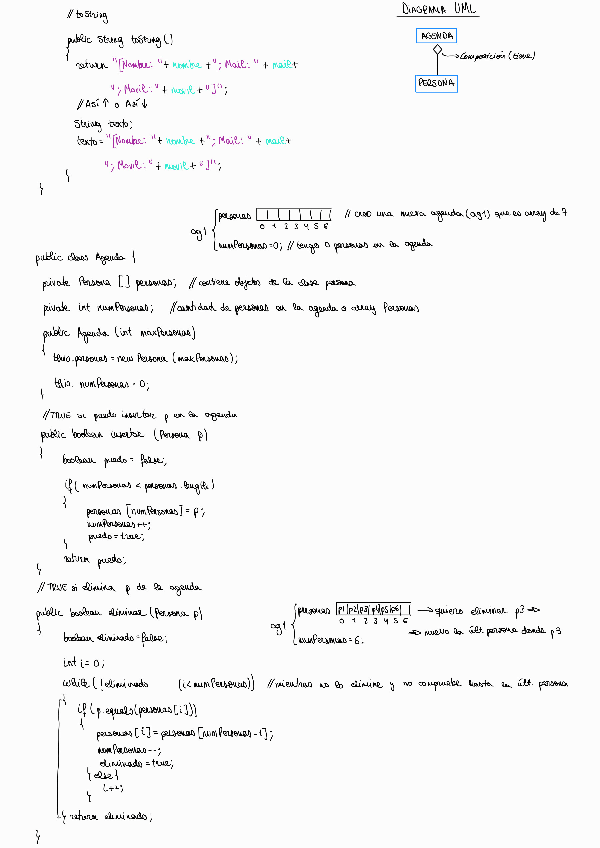 // toString
public String toString()
{
return "[Nombre: " + nombre + "; Mail: " + mail +
"; Movil: " + movil + "]";
// Así ↑ o Así ↓
String texto;
texto = "[Nombre: " + nombre + "; Mail: " + mail +
"; Movil: " + movil + "]";
}
}
DIAGRAMA UML
AGENDA
→ Composición (tiene)
PERSONA
ag1 { personas // creo una nueva agenda (ag1) que es array de 7
0 1 2 3 4 5 6
numPersonas = 0; // tengo 0 personas en la agenda
public class Agenda {
private Persona [] personas; // contiene objetos de la clase persona
private int numPersonas; // cantidad de personas en la agenda o array Personas
public Agenda (int maxPersonas)
{
this.personas = new Persona (maxPersonas);
this.numPersonas = 0;
}
// TRUE si puedo insertar p en la agenda
public boolean insertar (Persona p)
{
boolean puedo = false;
if ( numPersonas < personas.length)
{
personas [numPersonas] = p;
numPersonas ++;
puedo = true;
}
return puedo;
}
// TRUE si elimina p de la agenda
public boolean eliminar (Persona p)
{
boolean eliminado = false;
int i = 0;
ag1 { personas p1 p2 p3 p4 p5 p6 → quiero eliminar p3 ⇒
0 1 2 3 4 5 6 ⇒ muevo la últ. persona donde p3
numPersonas = 6.
while ( ! eliminado (i < numPersonas)) // mientras no lo elimine y no compruebe hasta la últ. persona
{
if ( p.equals (personas [i]))
{
personas [i] = personas [numPersonas - 1];
numPersonas --;
eliminado = true;
} else {
i ++;
}
} return eliminado;
}